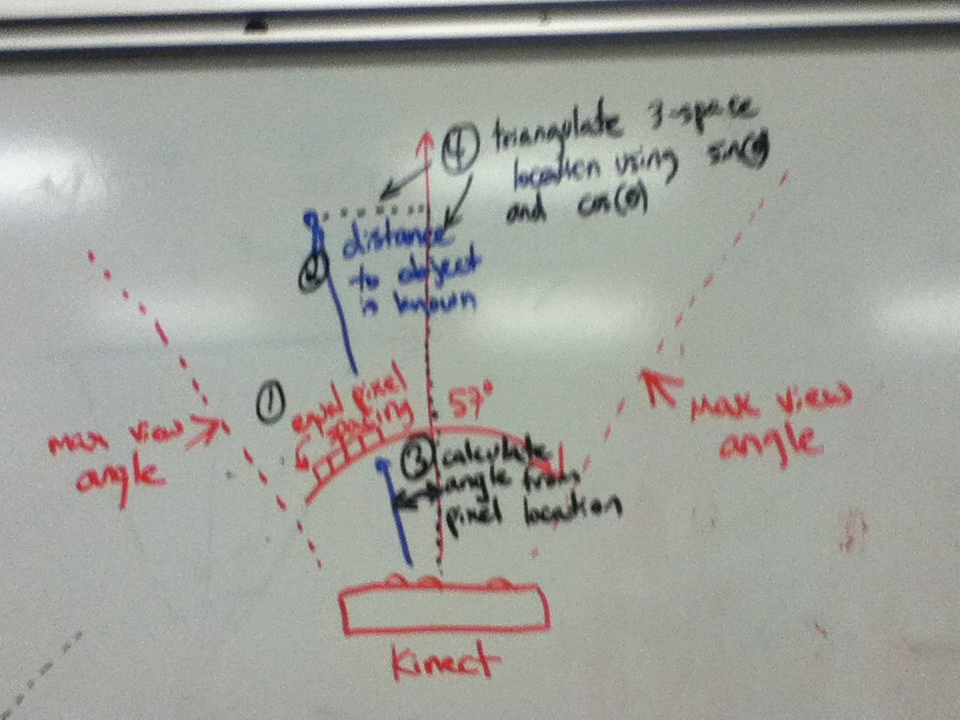 ④ triangulate 3-space
location using sin(θ)
and cos(θ)
② distance
to object
is known
① equal pixel
spacing
57°
max view
angle
max view
angle
③ calculate
angle from
pixel location
Kinect